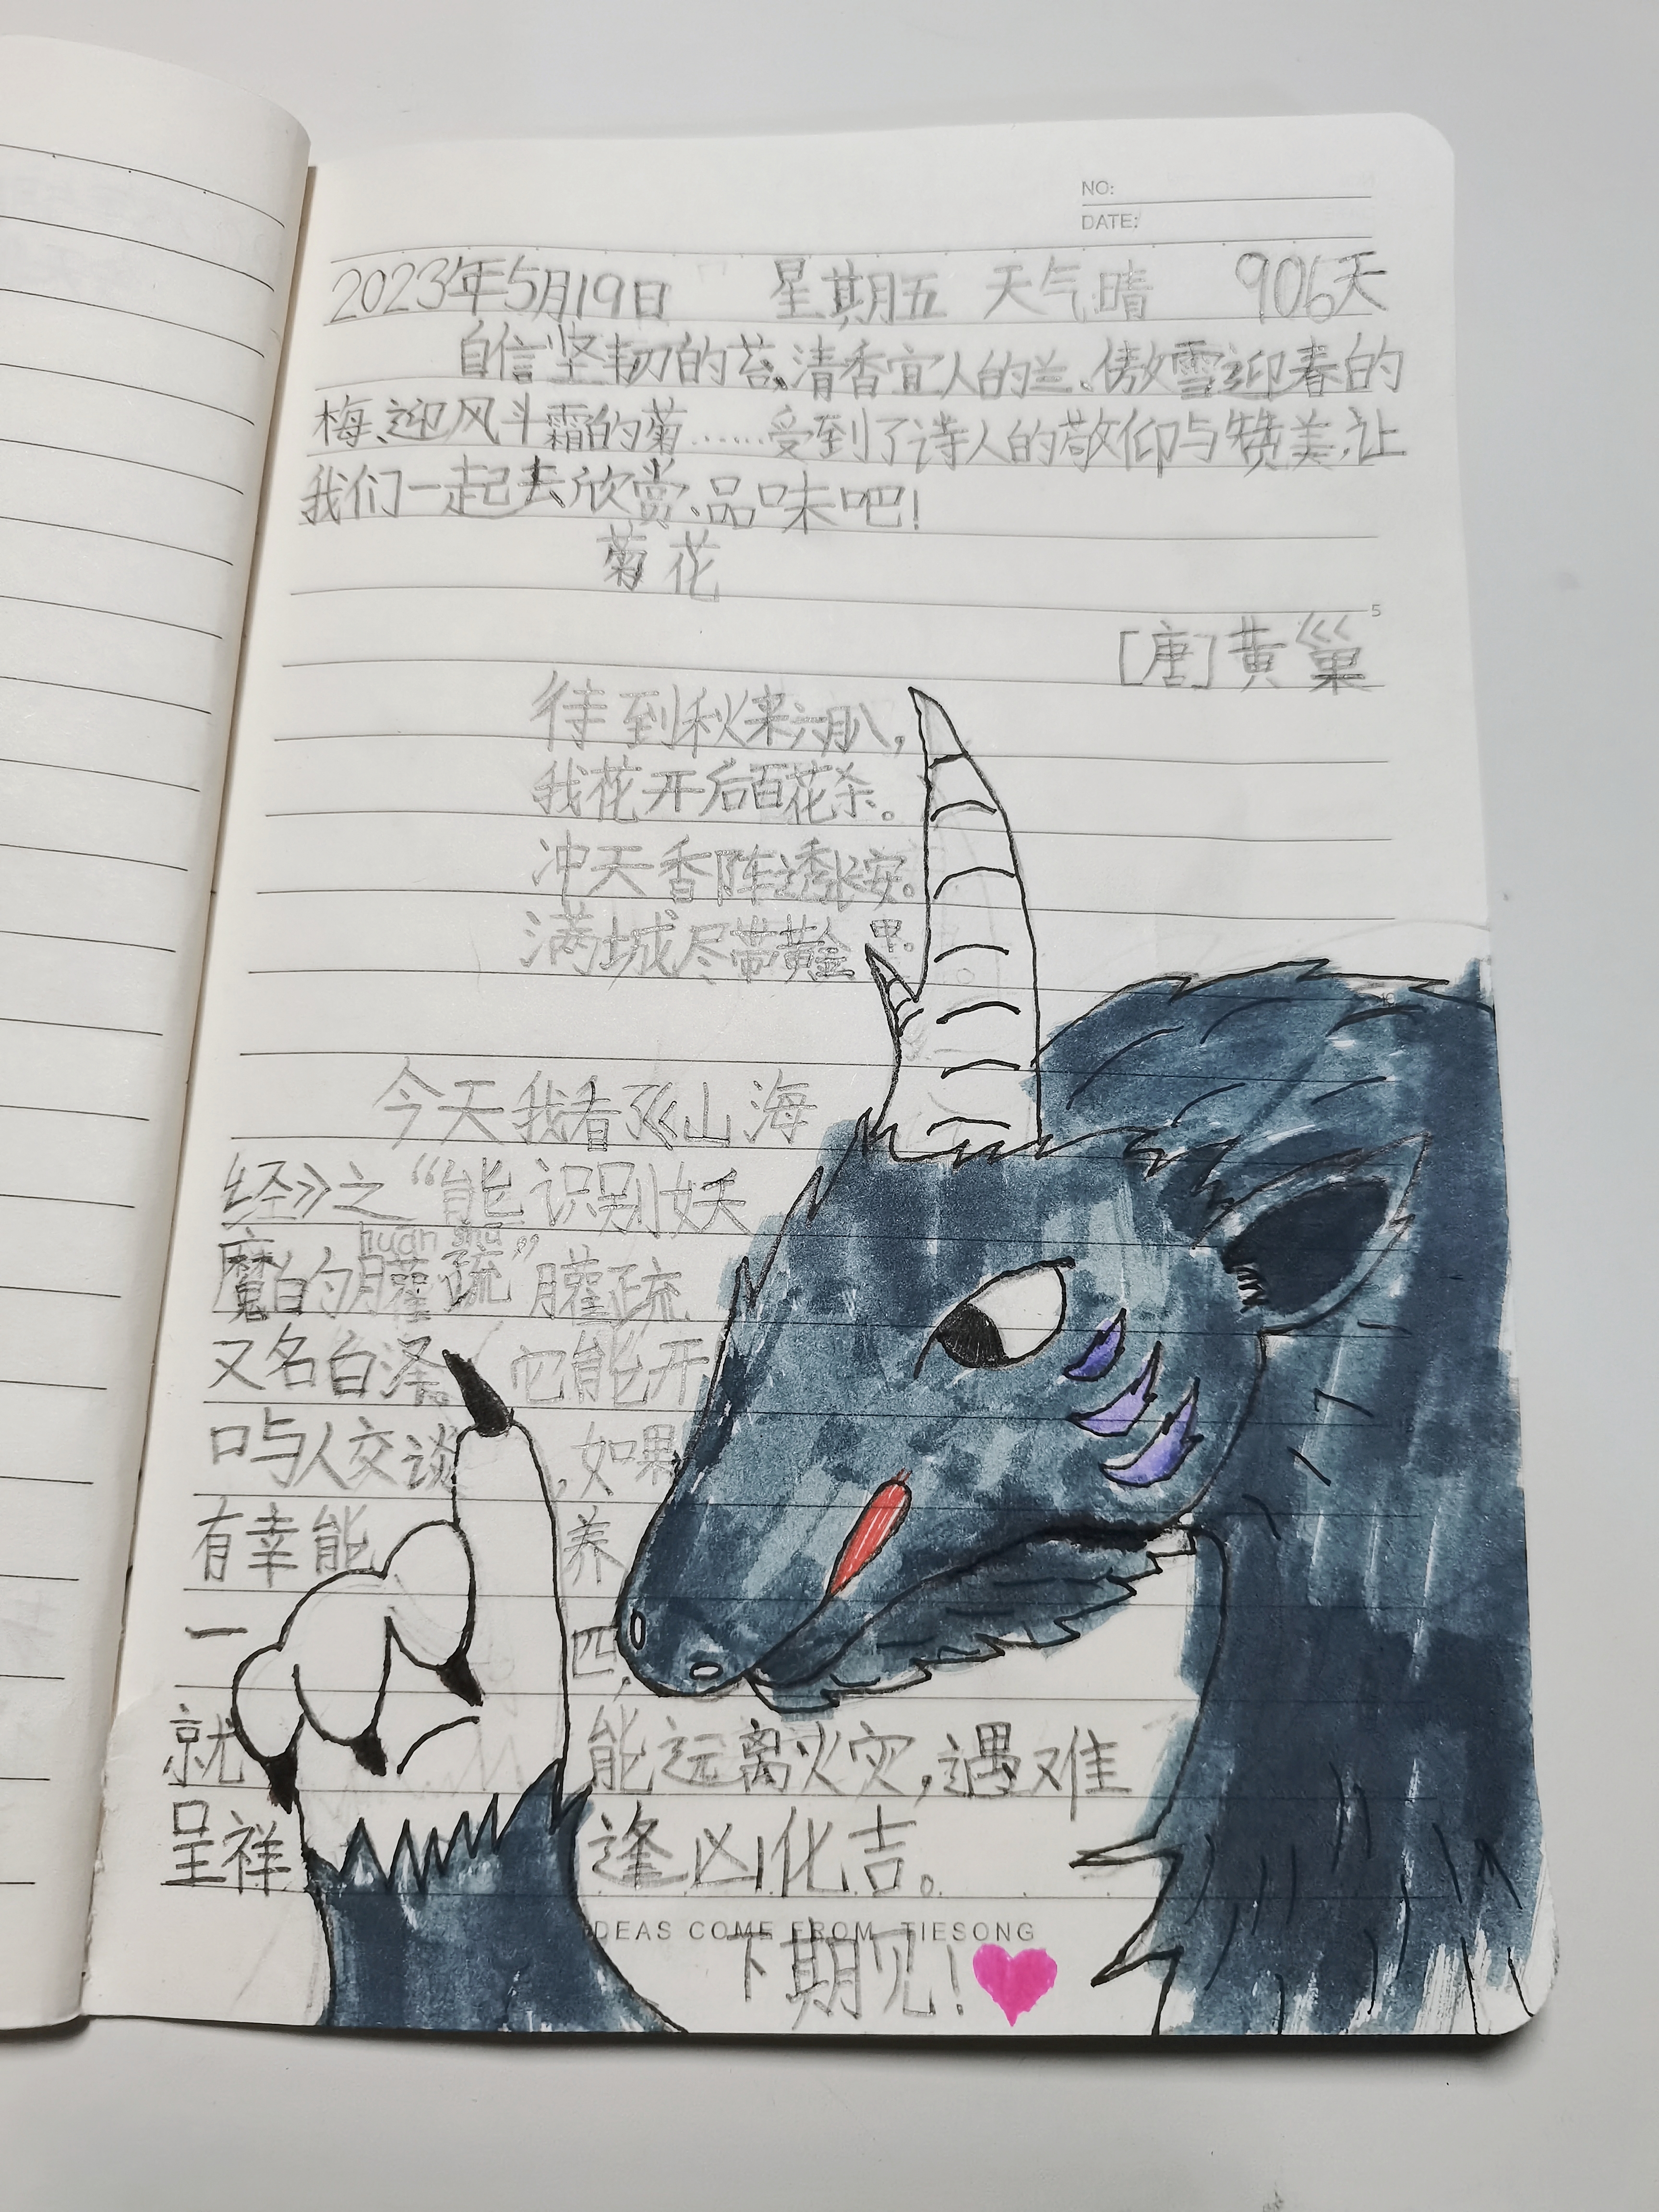 NO:
DATE:
2023年5月19日 星期五 天气晴 906天
自信坚韧的苔、清香宜人的兰、傲雪迎春的
梅、迎风斗霜的菊……受到了诗人的敬仰与赞美,让
我们一起去欣赏、品味吧!
菊花
5
[唐]黄巢
待到秋来六月八,
我花开后百花杀。
冲天香阵透长安。
满城尽带黄金甲。
10
今天我看了《山海
经》之“能识别妖
huan shu
魔的臛疏”臛疏
又名白泽。它能开
口与人交谈,如果
有幸能养
一四,
就能远离火灾,遇难
呈祥逢凶化吉。
DEAS COME FROM TIESONG
下期见!